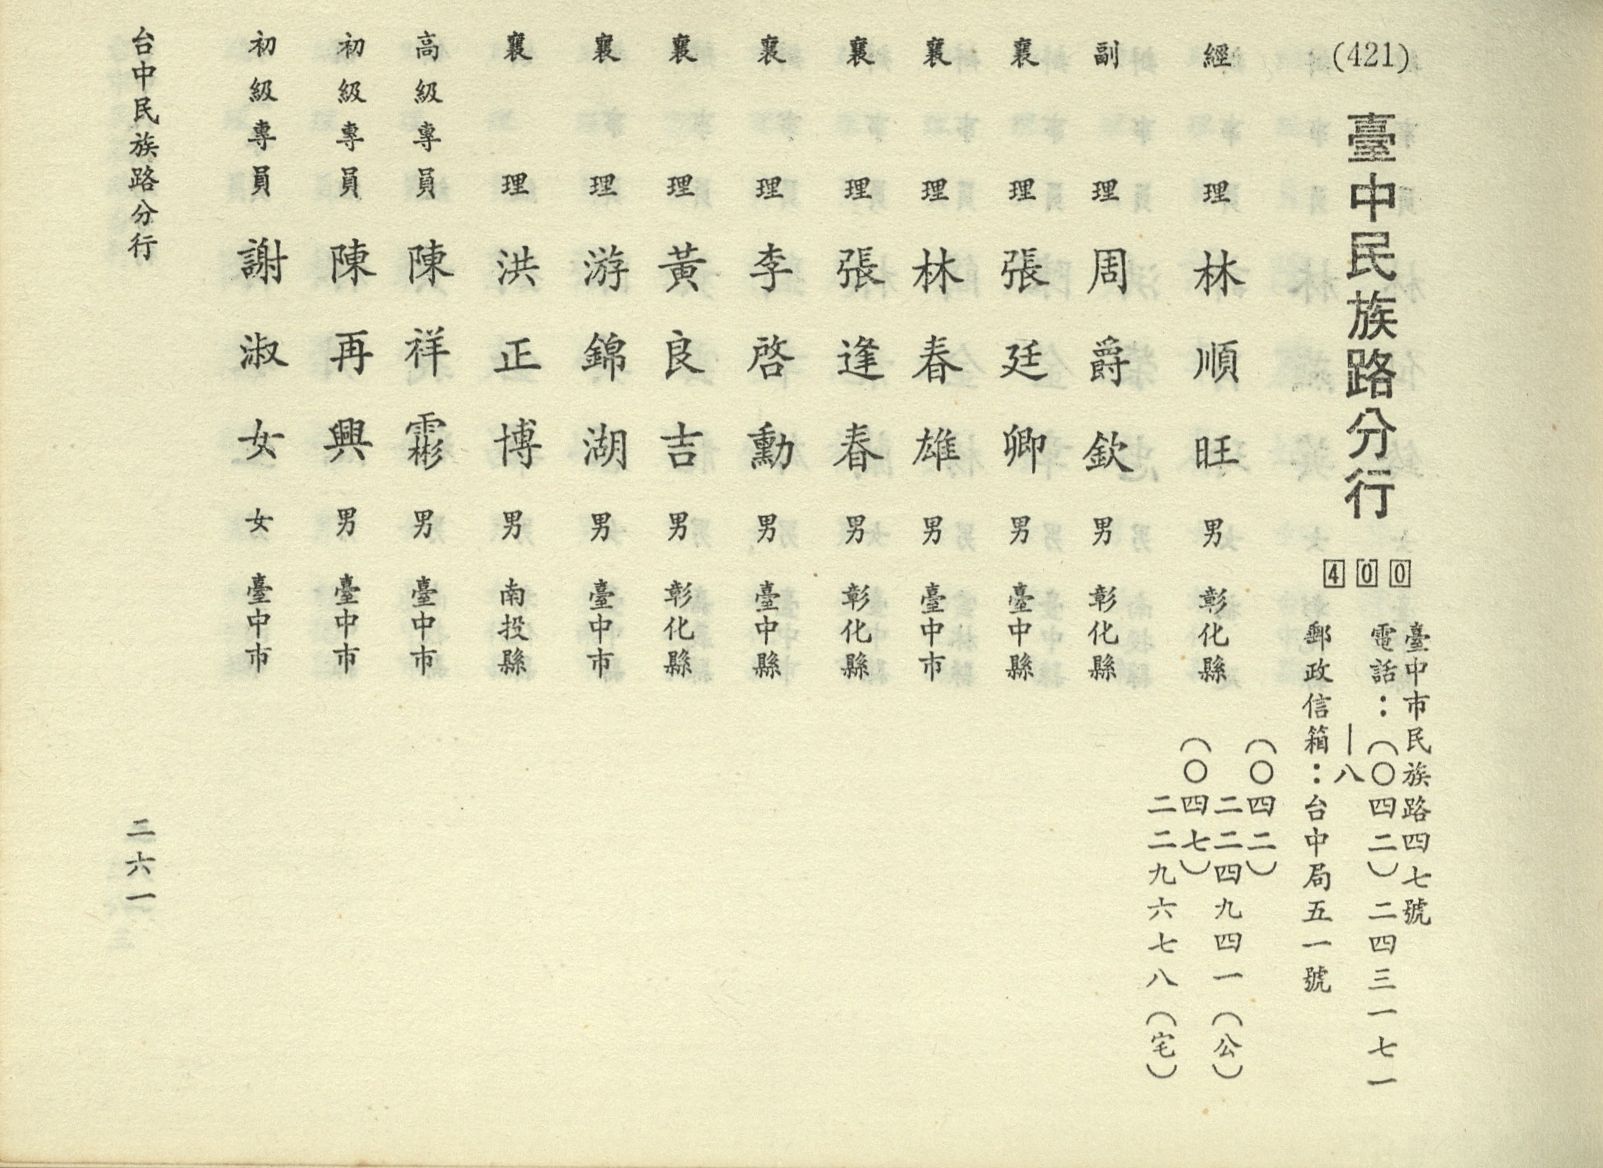 (421)
臺中民族路分行
400
臺中市民族路四七號
電話：(〇四二)二四三一七一
｜八
郵政信箱：台中局五一號
經理 林順旺 男 彰化縣
(〇四二)
二二四九四一(公)
(〇四七)
二二九六七八(宅)
副理 周爵欽 男 彰化縣
襄理 張廷卿 男 臺中縣
襄理 林春雄 男 臺中市
襄理 張逢春 男 彰化縣
襄理 李啓勳 男 臺中縣
襄理 黃良吉 男 彰化縣
襄理 游錦湖 男 臺中市
襄理 洪正博 男 南投縣
高級專員 陳祥霦 男 臺中市
初級專員 陳再興 男 臺中市
初級專員 謝淑女 女 臺中市
台中民族路分行
二六一